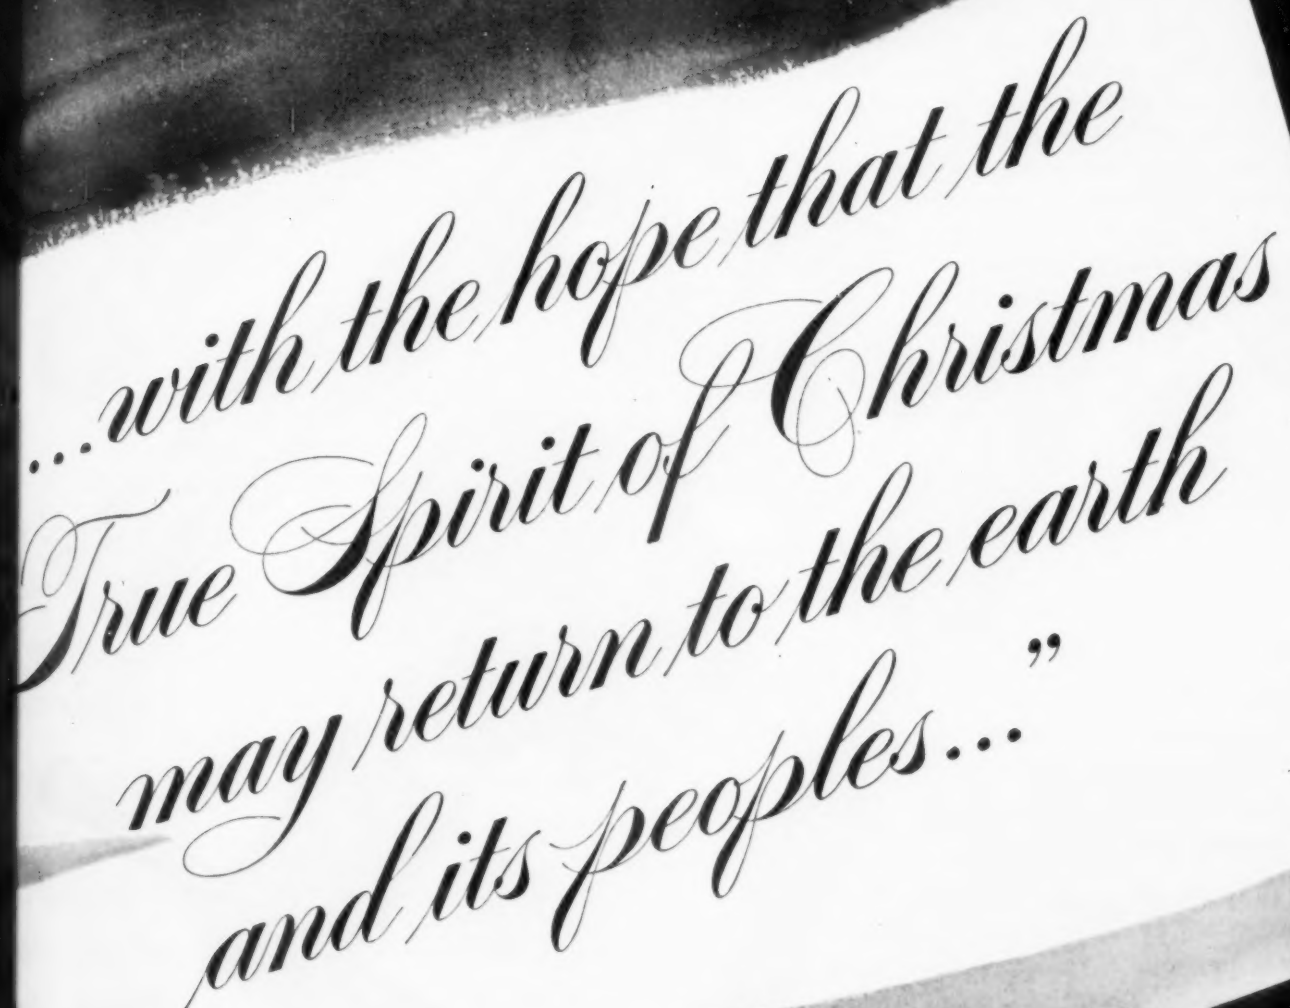 ...with the hope that the
True Spirit of Christmas
may return to the earth
and its peoples..."